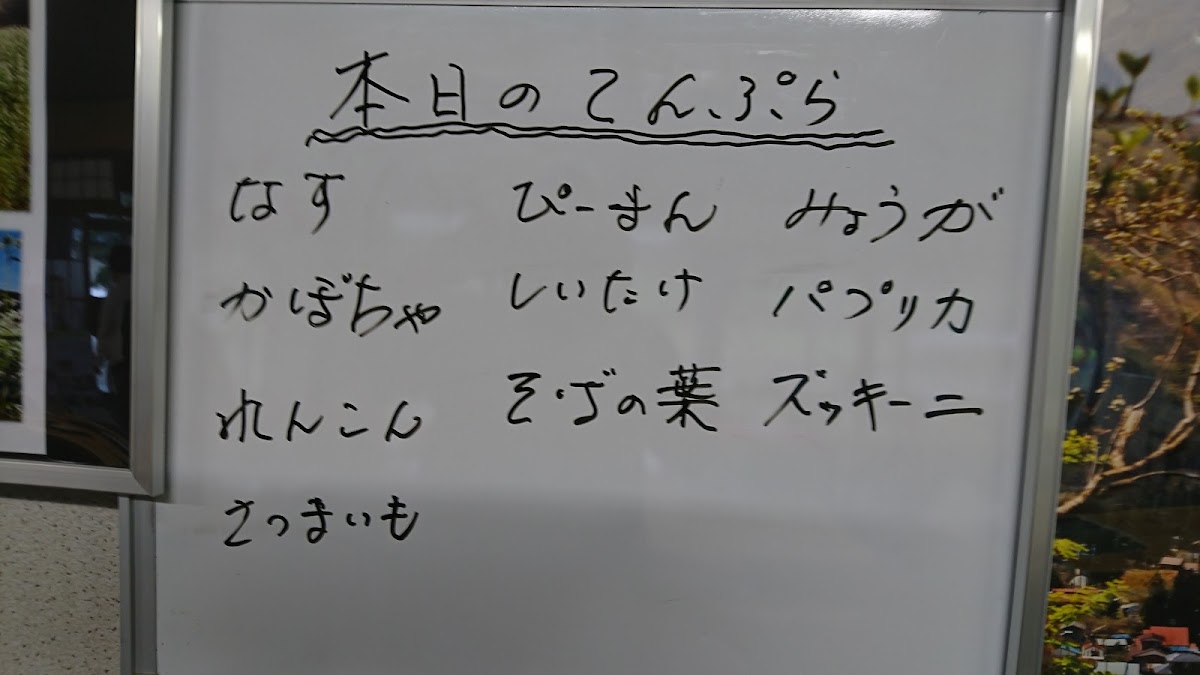 本日のてんぷら
なす ぴーまん みょうが
かぼちゃ しいたけ パプリカ
れんこん そばの葉 ズッキーニ
さつまいも